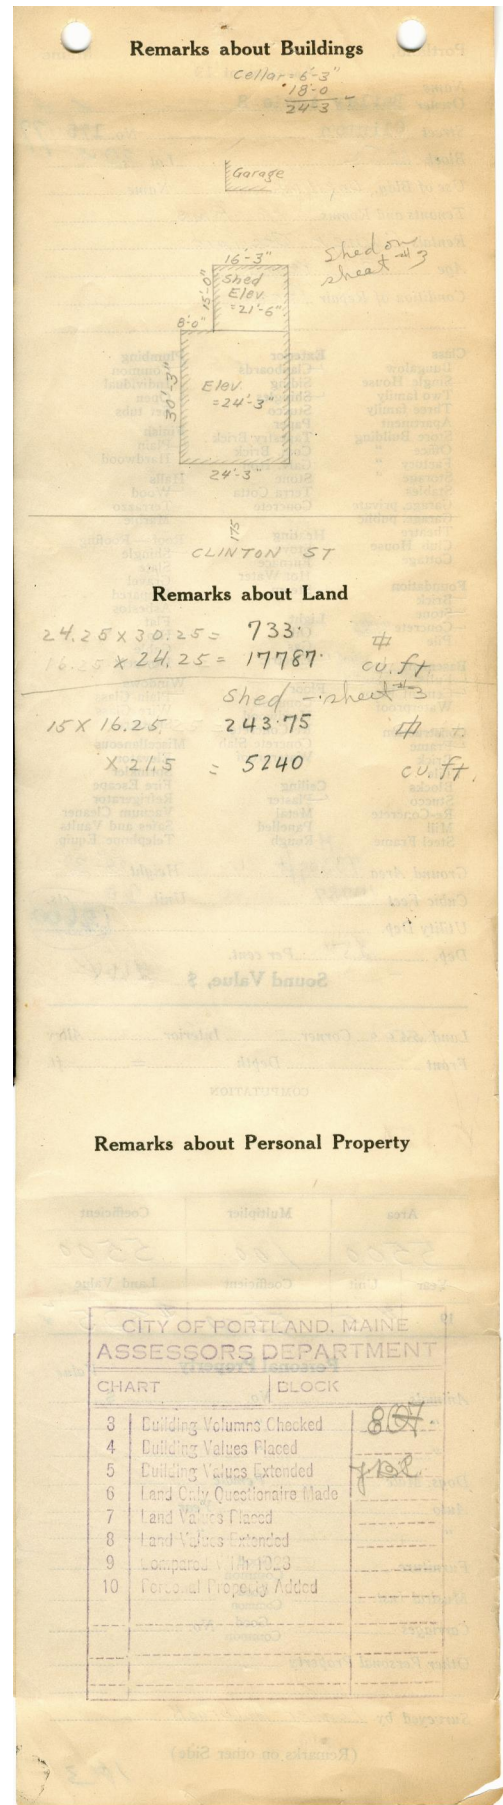 Remarks about Buildings
Cellar = 6'-3"
18'-0
24-3
Garage
Shed on
sheet #3
16'-3"
15'-0"
Shed
Elev.
=21'-6"
8'-0"
30'-3"
Elev.
=24'-3"
24'-3"
175
CLINTON ST
Remarks about Land
24.25 X 30.25 = 733.
16.25 X 24.25 = 17787. cu.ft
Shed - sheet #3
15 X 16.25 243.75
X 21.5 = 5240 cu.ft.
Remarks about Personal Property
CITY OF PORTLAND, MAINE
ASSESSORS DEPARTMENT
CHART BLOCK
3 Building Volumns Checked
4 Building Values Placed
5 Building Values Extended
6 Land Only Questionaire Made
7 Land Values Placed
8 Land Values Extended
9 Compared With 1923
10 Personal Property Added